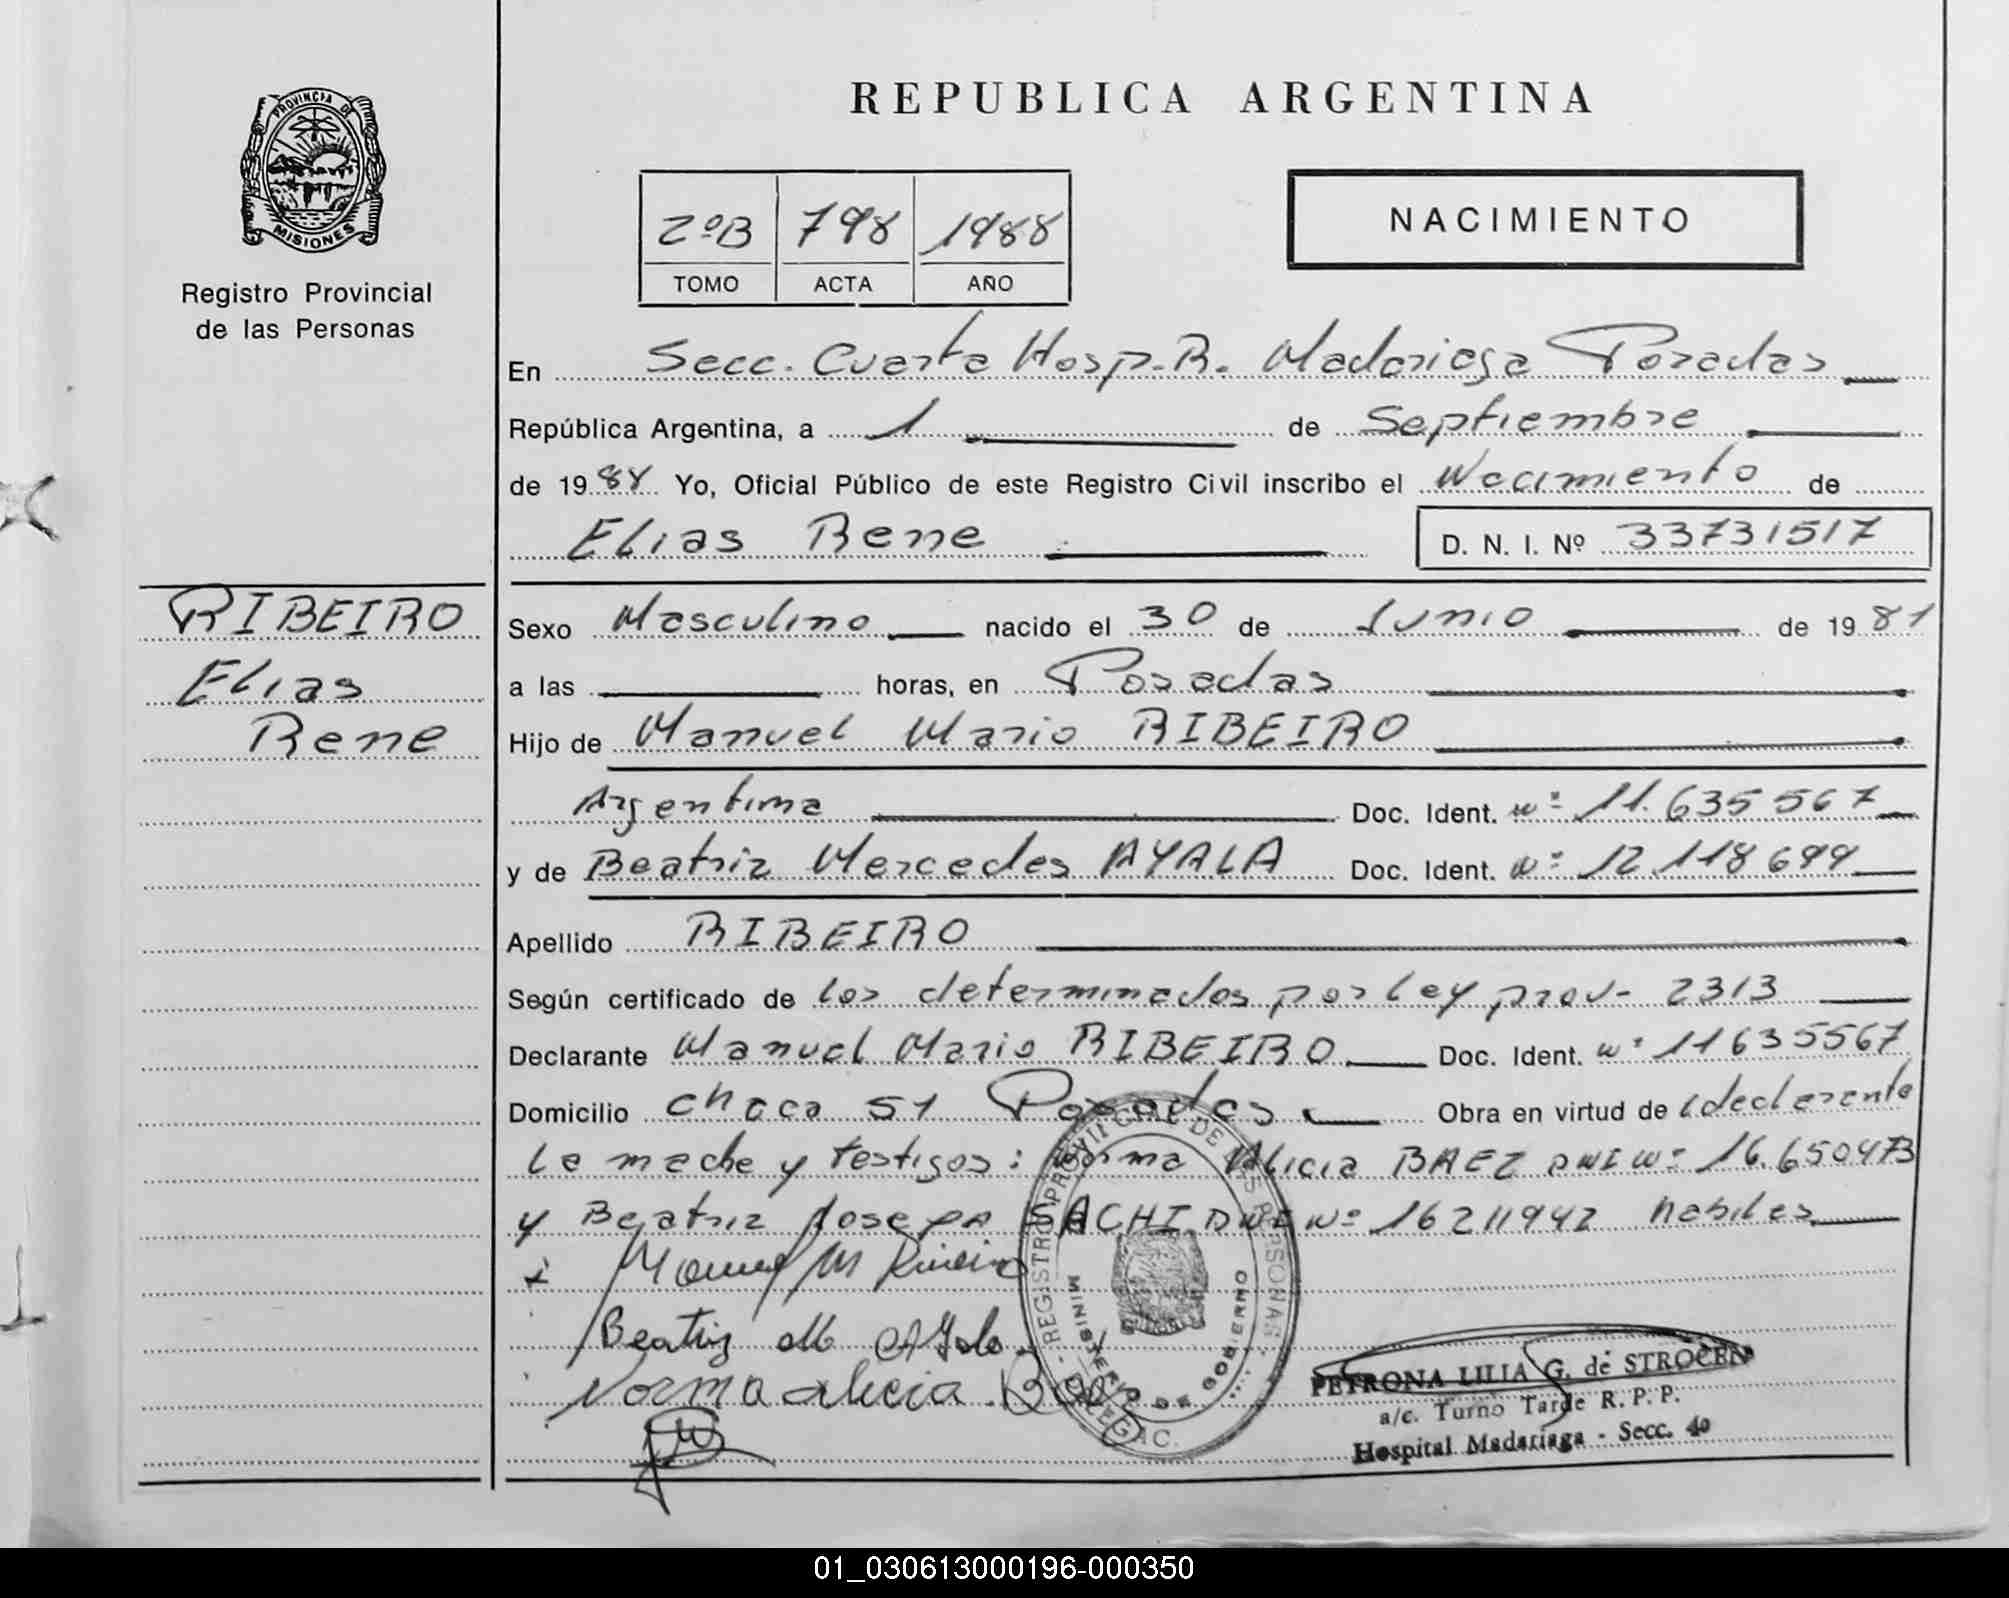 PROVINCIA DE
MISIONES
Registro Provincial
de las Personas
RIBEIRO
Elias
Rene
REPUBLICA ARGENTINA
2ºB 798 1988
TOMO ACTA AÑO
NACIMIENTO
En Secc. Cuarta Hosp. R. Madariaga Posadas
República Argentina, a 1 de Septiembre
de 1988 Yo, Oficial Público de este Registro Civil inscribo el Nacimiento de
Elias Rene D. N. I. Nº 33731517
Sexo Masculino nacido el 30 de Junio de 1981
a las horas, en Posadas
Hijo de Manuel Mario RIBEIRO
Argentina Doc. Ident. Nº 11.635567
y de Beatriz Mercedes AYALA Doc. Ident. Nº 12.118699
Apellido RIBEIRO
Según certificado de los determinados por ley prov. 2313
Declarante Manuel Mario RIBEIRO Doc. Ident. Nº 11635567
Domicilio chaca 51 Posadas Obra en virtud de declarante
la madre y testigos: Norma Alicia BAEZ DNI Nº 16.650473
y Beatriz Josefa SACHI DNI Nº 16211942 habiles
Manuel M Ribeiro
Beatriz M Ayala
Norma Alicia Baez
REGISTRO PROVINCIAL DE LAS PERSONAS
MINISTERIO DE GOBIERNO
DELEGAC.
PETRONA LILIA G. de STROCEN
a/c. Turno Tarde R. P. P.
Hospital Madariaga - Secc. 4º
01_030613000196-000350